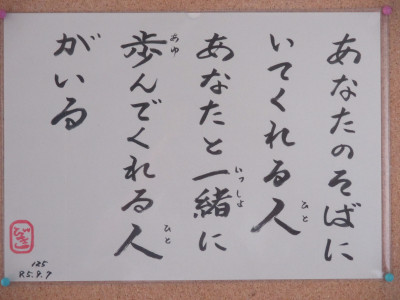 あなたのそばに
いてくれる人
ひと
あなたと一緒に
いっしょ
歩んでくれる人
あゆ
ひと
がいる
125
R5.9.7